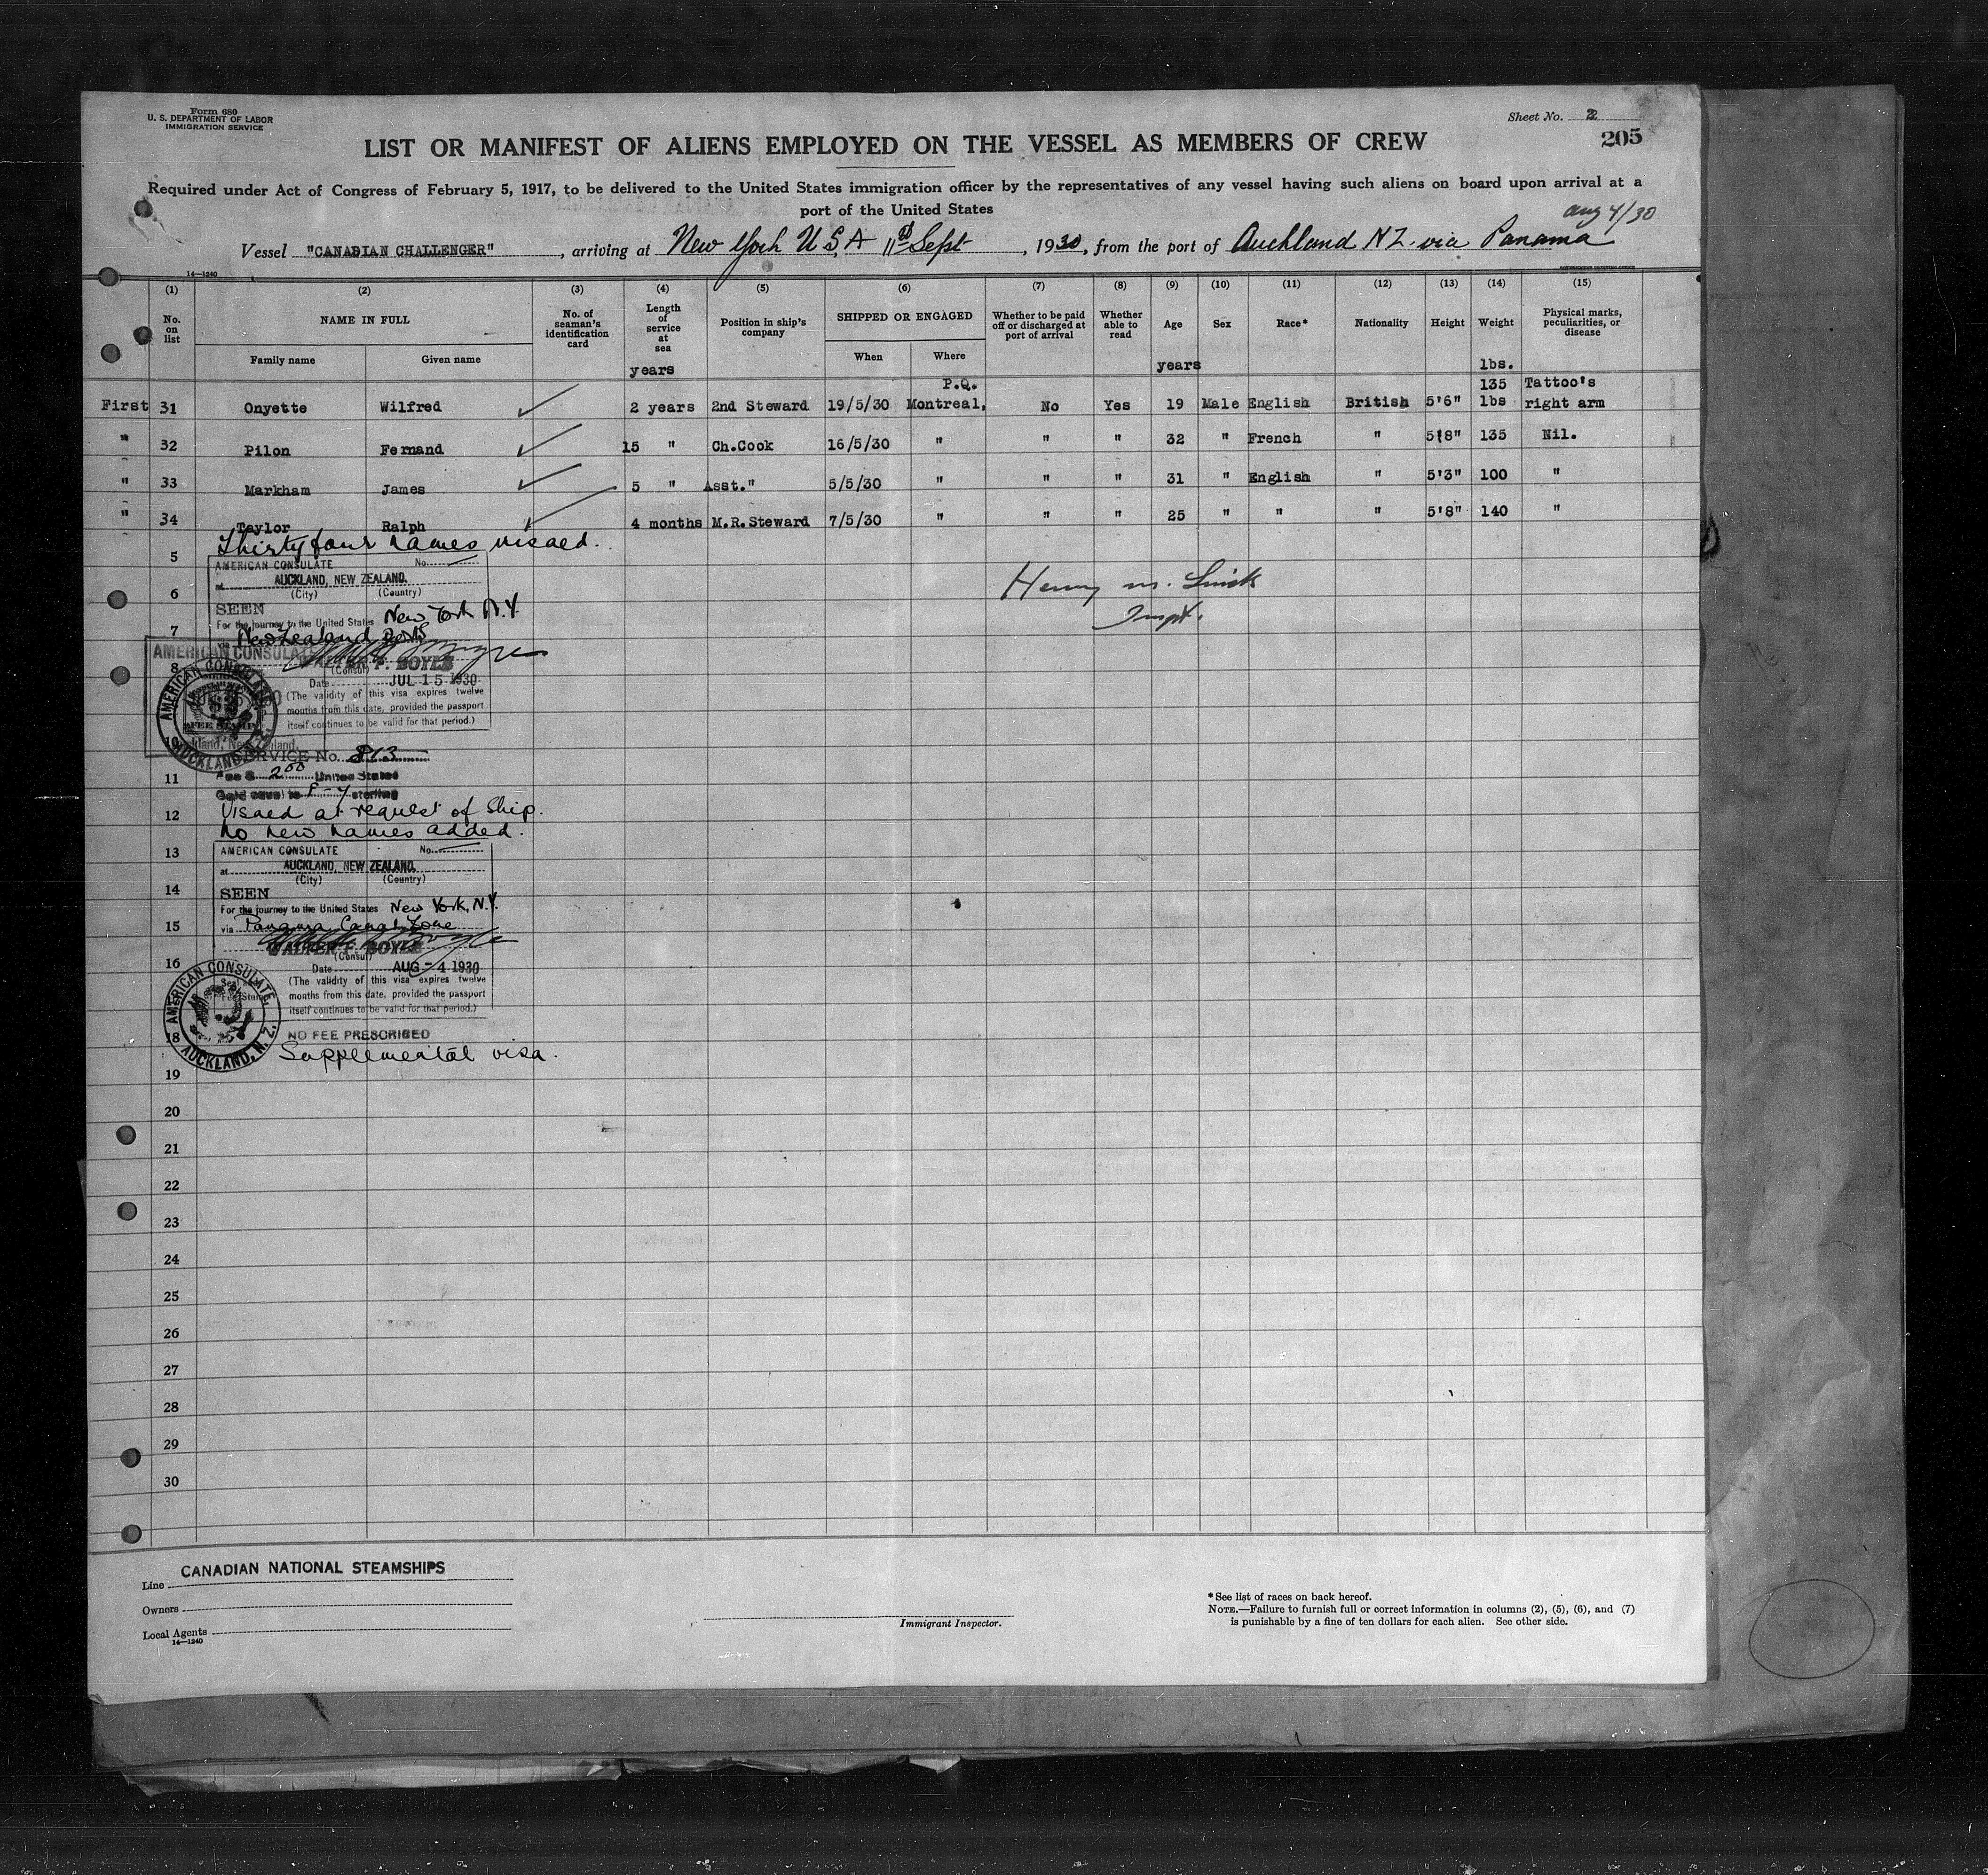 Form 680
U. S. DEPARTMENT OF LABOR
IMMIGRATION SERVICE
Sheet No. 2
205
LIST OR MANIFEST OF ALIENS EMPLOYED ON THE VESSEL AS MEMBERS OF CREW
Required under Act of Congress of February 5, 1917, to be delivered to the United States immigration officer by the representatives of any vessel having such aliens on board upon arrival at a
port of the United States
Aug 4/30
Vessel "CANADIAN CHALLENGER", arriving at New York U S A 11th Sept, 1930, from the port of Auckland NZ. via Panama
14—1240
(1) (2) (3) (4) (5) (6) (7) (8) (9) (10) (11) (12) (13) (14) (15)
No. on list NAME IN FULL No. of seaman's identification card Length of service at sea Position in ship's company SHIPPED OR ENGAGED Whether to be paid off or discharged at port of arrival Whether able to read Age Sex Race* Nationality Height Weight Physical marks, peculiarities, or disease
Family name Given name When Where
years years lbs.
P.Q. 135 Tattoo's
First 31 Onyette Wilfred 2 years 2nd Steward 19/5/30 Montreal, No Yes 19 Male English British 5'6" lbs right arm
" 32 Pilon Fernand 15 " Ch.Cook 16/5/30 " " " 32 " French " 5'8" 135 Nil.
" 33 Markham James 5 " Asst." 5/5/30 " " " 31 " English " 5'3" 100 "
" 34 Taylor Ralph 4 months M.R.Steward 7/5/30 " " " 25 " " " 5'8" 140 "
Thirty four names visaed.
5
AMERICAN CONSULATE No.
at AUCKLAND, NEW ZEALAND.
(City) (Country)
6
SEEN
For the journey to the United States New York N.Y.
7
via New Zealand Ports
AMERICAN CONSULATE
8
WALTER F. BOYLE
(Consul)
Date JUL 15 1930
(The validity of this visa expires twelve
months from this date, provided the passport
itself continues to be valid for that period.)
AMERICAN CONSULATE
AUCKLAND, N. Z.
FEE STAMP
10
SERVICE No. 813
11
Fee $ 2.00 United States
Gold equal to 8-4 sterling
12
Visaed at request of ship.
No new names added.
13
AMERICAN CONSULATE No.
at AUCKLAND, NEW ZEALAND.
(City) (Country)
14
SEEN
For the journey to the United States New York, N.Y.
15
via Panama Canal Zone
WALTER F. BOYLE
(Consul)
16
Date AUG - 4 1930
(The validity of this visa expires twelve
months from this date, provided the passport
itself continues to be valid for that period.)
AMERICAN CONSULATE,
AUCKLAND, N. Z.
18
NO FEE PRESCRIBED
Supplemental visa.
Henry M.
Inspt.
19
20
21
22
23
24
25
26
27
28
29
30
CANADIAN NATIONAL STEAMSHIPS
Line
Owners
Local Agents
14—1240
Immigrant Inspector.
*See list of races on back hereof.
NOTE.—Failure to furnish full or correct information in columns (2), (5), (6), and (7)
is punishable by a fine of ten dollars for each alien. See other side.